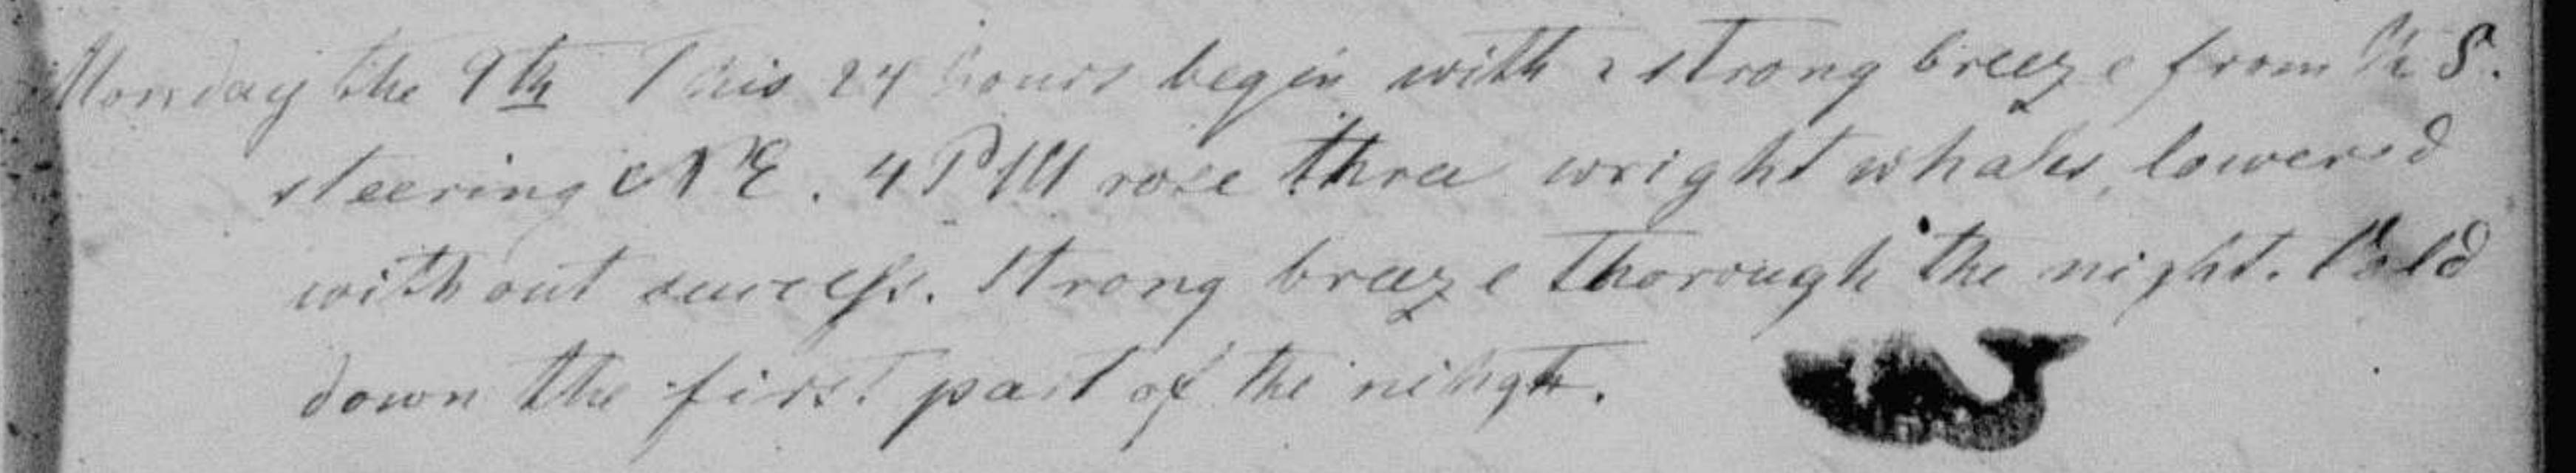 Monday the 9th This 24 hours begin with a strong breeze from the S.
steering NE. 4 PM rose three wright whales, lowered
without success. Strong breeze thorough the night. Cold
down the first part of the nihgt.